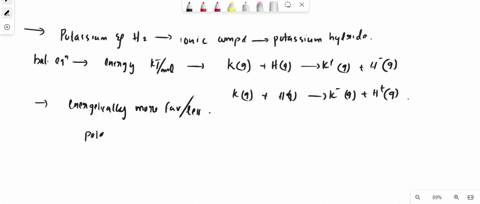 → Potassium & H₂ → ionic compd → potassium hydride.
bal. eqⁿ → energy kJ/mol → K(g) + H(g) → K⁺(g) + H⁻(g)
K(g) + H(g) → K⁻(g) + H⁺(g).
→ Energetically more fav/less
pola
89%